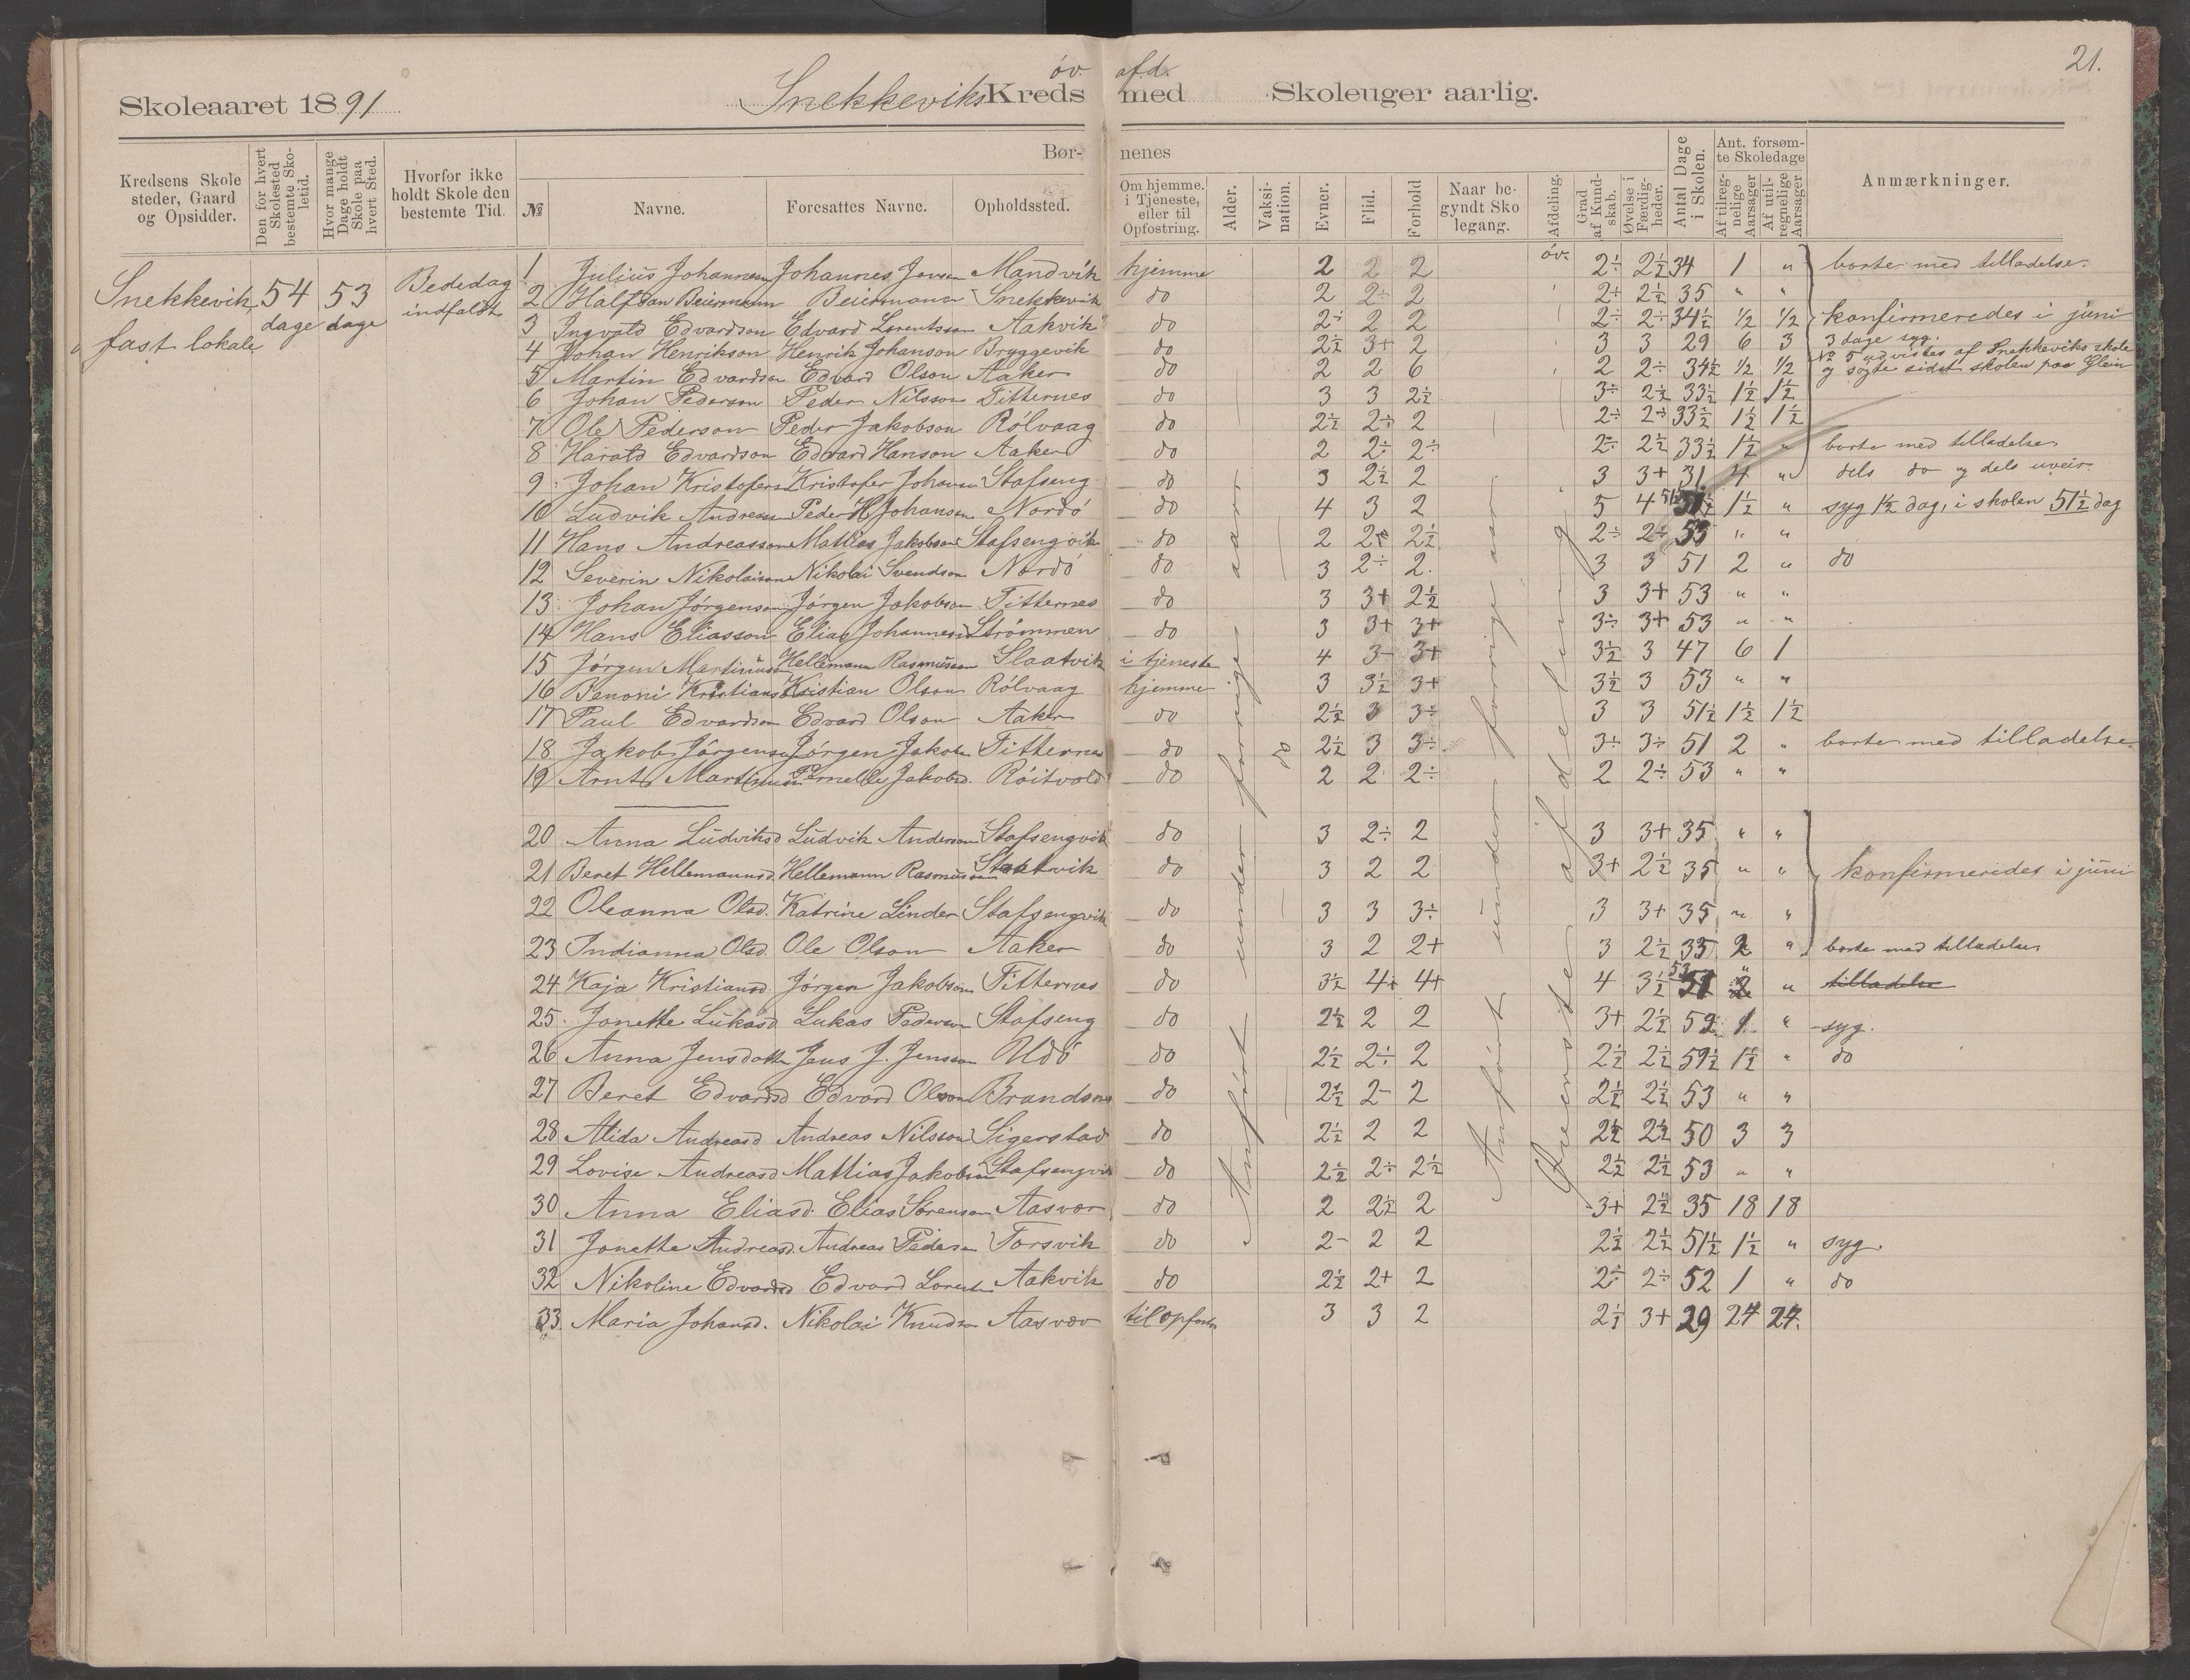 21.
Skoleaaret 1891 Snekkeviks Kreds öv. afd. med Skoleuger aarlig.
Kredsens Skole steder, Gaard og Opsidder. Den for hvert Skolested bestemte Skoletid. Hvor mange Dage holdt Skole paa hvert Sted. Hvorfor ikke holdt Skole den bestemte Tid. Børnenes № Navne. Foresattes Navne. Opholdssted. Om hjemme, i Tjeneste, eller til Opfostring. Alder. Vaksination. Evner. Flid. Forhold Naar begyndt Sko legang. Afdeling. Grad af Kundskab. Øvelse i Færdigheder. Antal Dage i Skolen. Ant. forsømte Skoledage Af tilregnelige Aarsager Af utilregnelige Aarsager Anmærkninger.
Snekkevik, 54 dage 53 dage Bededag indfaldt
fast lokale
1 Julius Johannesen Johannes Jonsen Mandvik hjemme 2 2 2 öv. 2÷ 2½ 34 1 " borte med tilladelse.
2 Halfdan Beiermann Beiermann Snekkevik do 2 2÷ 2 2÷ 2½ 35 " "
3 Ingvald Edvardson Edvard Lorentsson Aakvik do 2÷ 2 2 2÷ 2÷ 34½ ½ ½ konfirmeredes i juni
4 Johan Henrikson Henrik Johanson Bryggevik do 2½ 3+ 2 3 3 29 6 3 3 dage syg.
5 Martin Edvardsen Edvard Olson Aaker do 2 2 6 2 2÷ 34½ ½ ½ № 5 udvistes af Snekkeviks skole og søgte sidst skolen paa Glein
6 Johan Pederson Peder Nilsson Titternes do 3 3 2½ 3÷ 2½ 33½ 1½ 1½
7 Ole Pederson Peder Jakobson Rölvaag do 2½ 2÷ 2 2÷ 2÷ 33½ 1½ 1½
8 Harald Edvardson Edvard Hanson Aaker do 2 2÷ 2÷ 2÷ 2½ 33½ 1½ " borte med tilladelse
9 Johan Kristofersen Kristofer Johansen Stafseng do 3 2½ 2 3 3+ 31 4 " dels do og dels uveir.
10 Ludvik Andreasen Peder H Johansen Nordö do 4 3 2 5 4 51½ 1½ " syg 1½ dag, i skolen 51½ dag
11 Hans Andreasson Mattias Jakobsen Stafsengvik do 2 2 2½ 2÷ 2÷ 53 " "
12 Severin Nikolaisen Nikolai Svendson Nordö do 3 2÷ 2. 3 3 51 2 " do
13 Johan Jörgensen Jörgen Jakobson Titternes do 3 3+ 2½ 3 3+ 53 " "
14 Hans Eliasson Elias Johannesen Strömmen do 3 3+ 3+ 3÷ 3+ 53 " "
15 Jörgen Martinusen Hellemann Rasmussen Slaatvik i tjeneste 4 3- 3+ 3½ 3 47 6 1
16 Benoni Kristians Kristian Olson Rölvaag hjemme 3 3½ 3+ 3½ 3 53 " "
17 Paul Edvardsen Edvard Olson Aaker do 2½ 3 3÷ 3 3 51½ 1½ 1½
18 Jakob Jörgensen Jörgen Jakobsen Titternes do do 2½ 3 3÷ 3÷ 3÷ 51 2 " borte med tilladelse
19 Arnt Martinusen Pernelle Jakobsd. Röitvold do 2 2 2÷ 2 2÷ 53 " "
20 Anna Ludviksd Ludvik Anderson Stafsengvik do 3 2÷ 2 3 3+ 35 " "
21 Beret Hellemannsd. Hellemann Rasmussen Slaatvik do 3 2 2 3+ 2½ 35 " " konfirmeredes i juni
22 Oleanna Olsd. Katrine Linder Stafsengvik do 3 3 3÷ 3 3+ 35 " "
23 Indianna Olsd. Ole Olson Aaker do 3 2 2+ 3 2½ 33 2 " borte med tilladelse
24 Kaja Kristiansd. Jörgen Jakobson Titternes do 3½ 4+ 4+ 4 3½ 53 " " tilladelse
25 Jonette Lukasd Lukas Pederson Stafseng do 2½ 2 2 3+ 2½ 52 1 " syg.
26 Anna Jensdatter Jens J. Jensson Udö do 2½ 2÷ 2 2½ 2½ 51½ 1½ " do
27 Beret Edvardsd Edvard Olson Brandsnes do 2½ 2- 2 2½ 2½ 53 " "
28 Alida Andreasd Andreas Nilsson Sigerstad do 2½ 2 2 2½ 2½ 50 3 3
29 Lovise Andreasd Mattias Jakobsen Stafsengvik do 2½ 2÷ 2½ 2½ 2½ 53 " "
30 Anna Eliasd. Elias Sörenson Aasvær do 2 2½ 2 3+ 2½ 35 18 18
31 Jonette Andreasd. Andreas Pedersen Forsvik do 2- 2 2 2½ 2½ 51½ 1½ " syg.
32 Nikoline Edvardsd Edvard Lorentsen Aakvik do 2½ 2+ 2 2÷ 2÷ 52 1 " do
33 Maria Johansd. Nikolai Knudsen Aasvær til opfostr 3 3 2 2½ 3+ 29 24 24.
Anfört under forrige aar
Anfört under forrige aar
Överste afdeling.